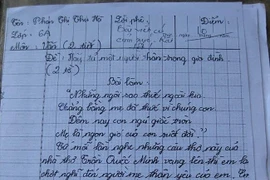 Tên: Phạm Thị Thu Hà Lời phê: Điểm
Lớp: 6A
Môn: Văn (2 tiết)
Đề: Hãy tả một người thân trong gia đình
(2 tiết)
Bài làm
"Những ngôi sao thức ngoài kia
Chẳng bằng mẹ đã thức vì chúng con.
Đêm nay con ngủ giấc tròn
Mẹ là ngọn gió của con suốt đời."
Cứ mỗi lần nghe những câu thơ này của
nhà thơ Trần Quốc Minh vang lên thì em lại
chợt nghĩ đến người mẹ thân yêu của em.